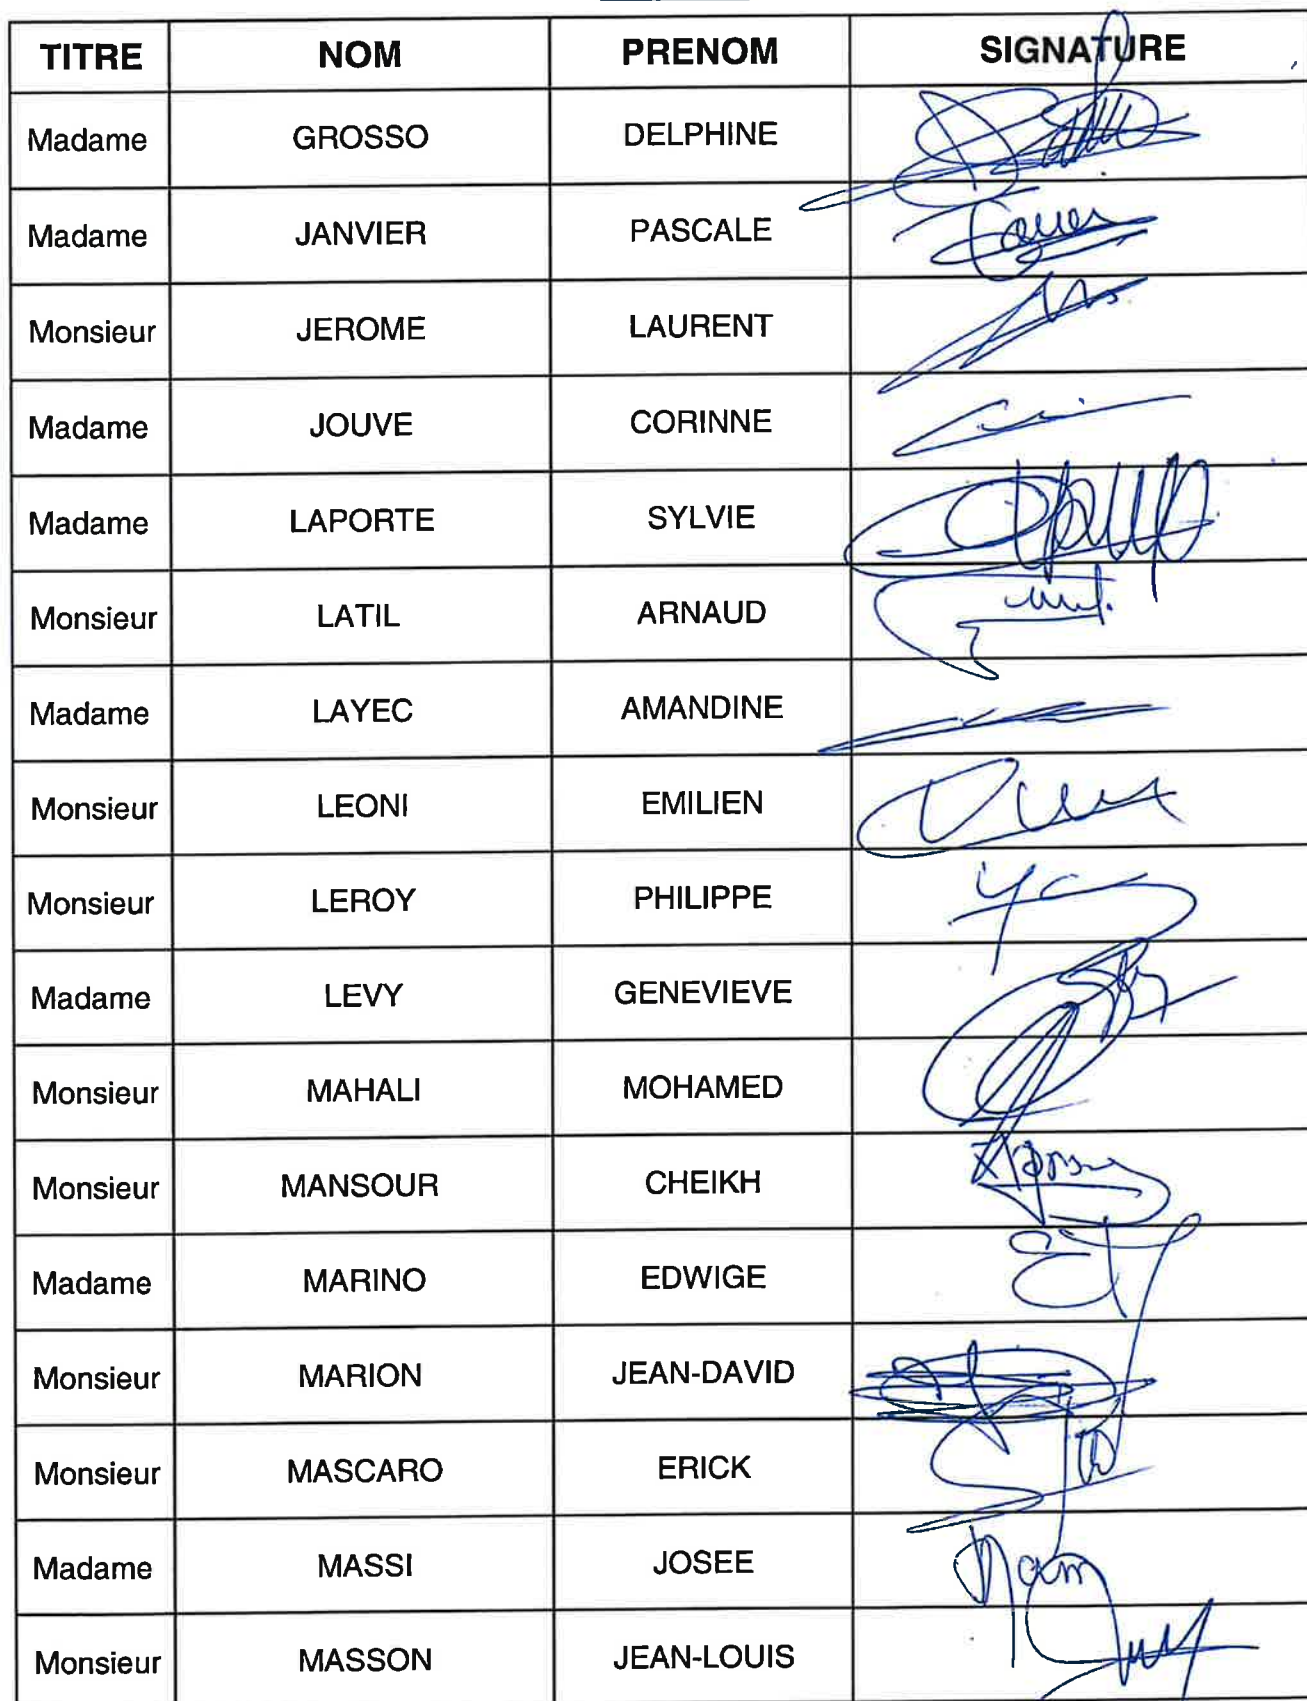 TITRE NOM PRENOM SIGNATURE
Madame GROSSO DELPHINE
Madame JANVIER PASCALE
Monsieur JEROME LAURENT
Madame JOUVE CORINNE
Madame LAPORTE SYLVIE
Monsieur LATIL ARNAUD
Madame LAYEC AMANDINE
Monsieur LEONI EMILIEN
Monsieur LEROY PHILIPPE
Madame LEVY GENEVIEVE
Monsieur MAHALI MOHAMED
Monsieur MANSOUR CHEIKH
Madame MARINO EDWIGE
Monsieur MARION JEAN-DAVID
Monsieur MASCARO ERICK
Madame MASSI JOSEE
Monsieur MASSON JEAN-LOUIS